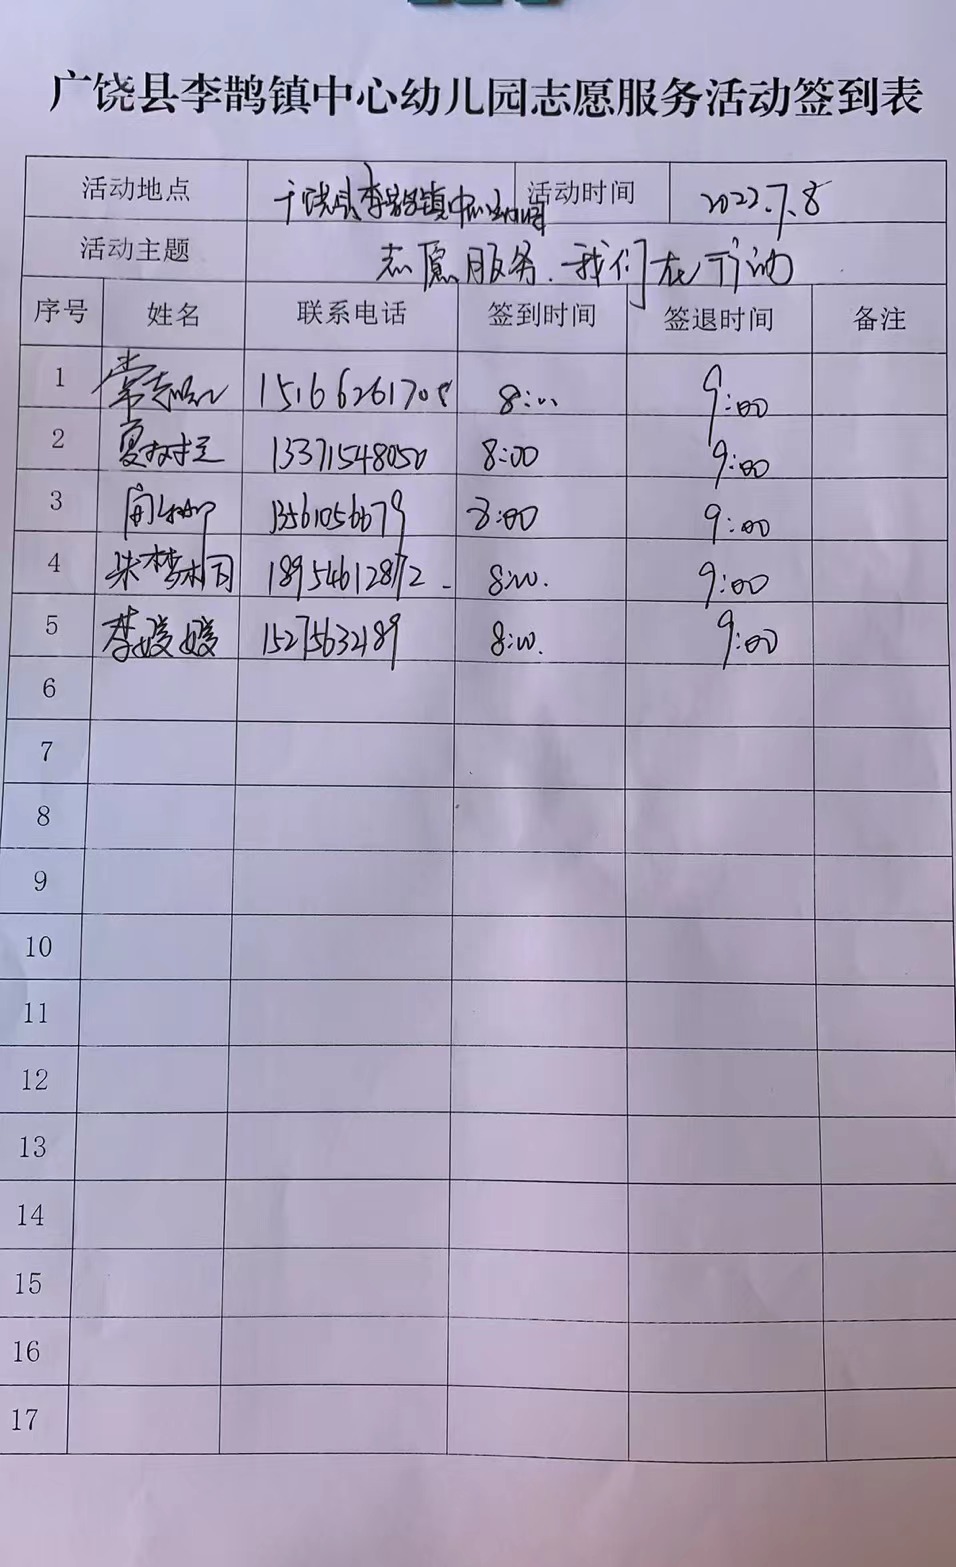 广饶县李鹊镇中心幼儿园志愿服务活动签到表
活动地点 广饶县李鹊镇中心幼儿园 活动时间 2022.7.8
活动主题 志愿服务.我们在行动
序号 姓名 联系电话 签到时间 签退时间 备注
1 常 8:00 9:00
2 夏 13371548050 8:00 9:00
3 13561056679 8:00 9:00
4 朱梦 18954612872 8:00. 9:00
5 李媛媛 15275632189 8:00. 9:00
6
7
8
9
10
11
12
13
14
15
16
17